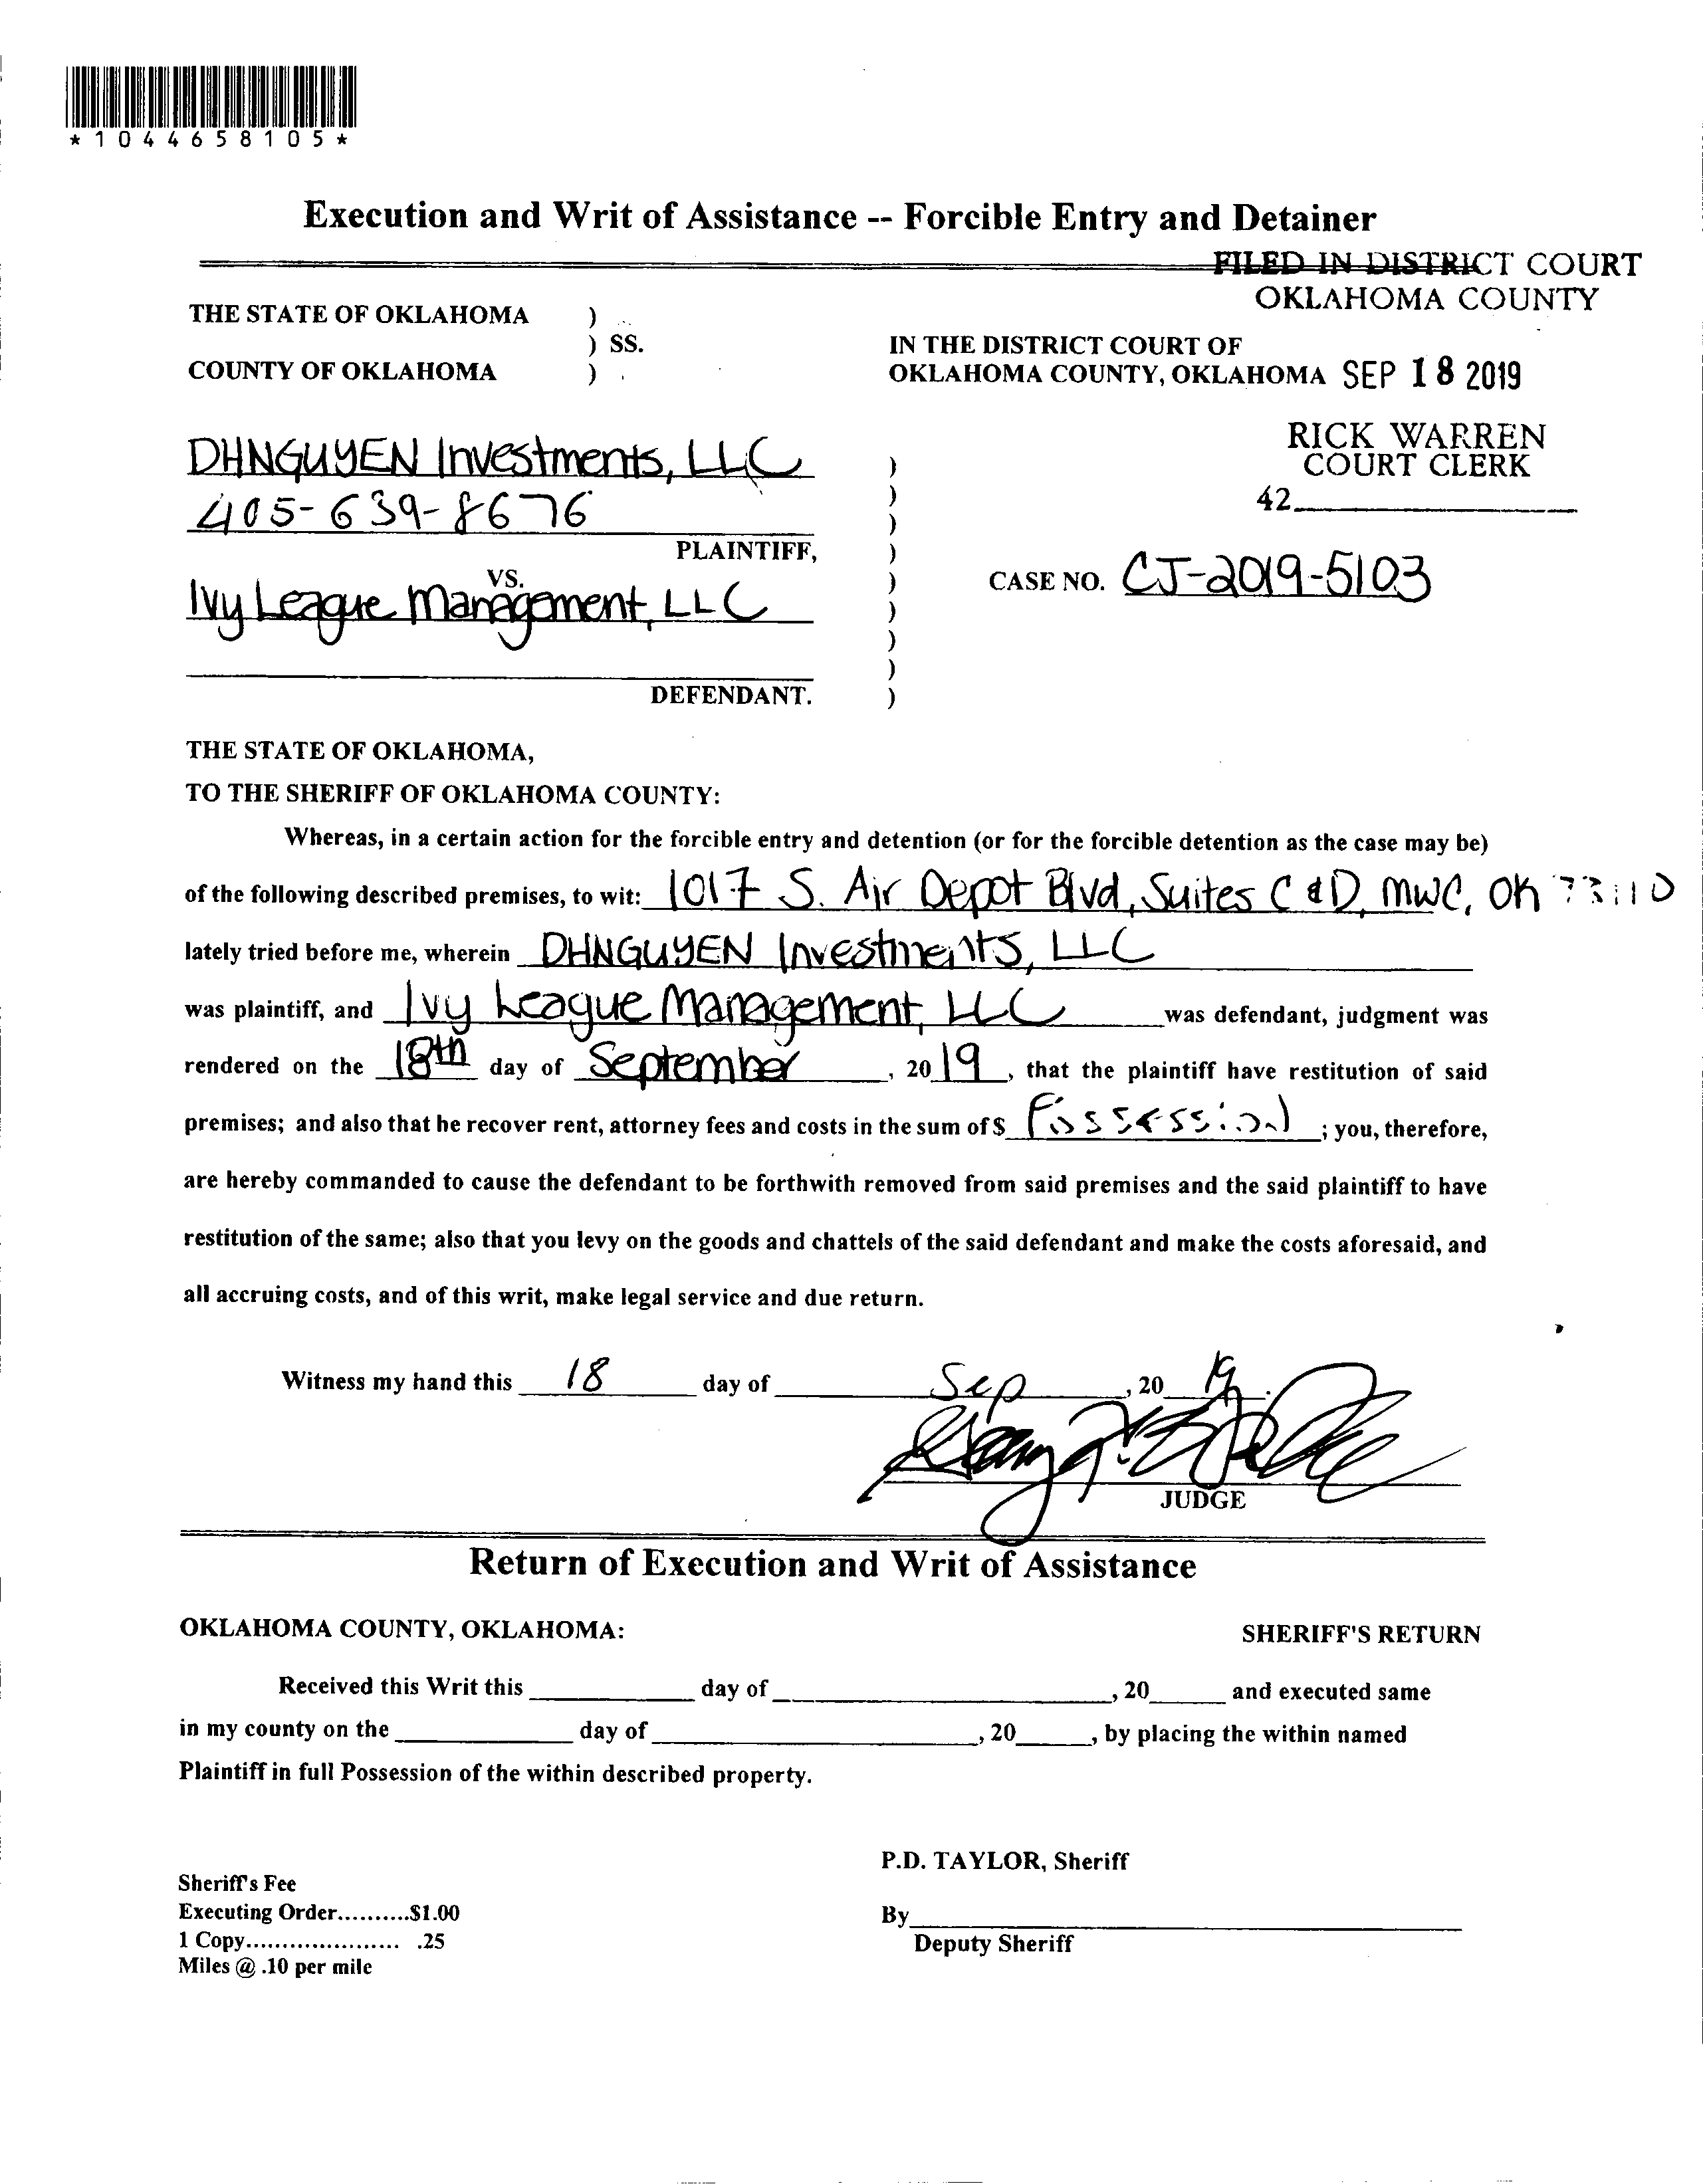 *1044658105*
Execution and Writ of Assistance -- Forcible Entry and Detainer
FILED IN DISTRICT COURT
OKLAHOMA COUNTY
THE STATE OF OKLAHOMA )
) SS.
COUNTY OF OKLAHOMA )
IN THE DISTRICT COURT OF
OKLAHOMA COUNTY, OKLAHOMA SEP 18 2019
RICK WARREN
COURT CLERK
42
DHNGUYEN Investments, LLC )
405-639-8676 )
)
PLAINTIFF, )
VS. )
Ivy League Management, LLC )
)
)
DEFENDANT. )
CASE NO. CJ-2019-5103
THE STATE OF OKLAHOMA,
TO THE SHERIFF OF OKLAHOMA COUNTY:
Whereas, in a certain action for the forcible entry and detention (or for the forcible detention as the case may be)
of the following described premises, to wit: 1017 S. Air Depot Blvd, Suites C & D, MWC, OK 73110
lately tried before me, wherein DHNGUYEN Investments, LLC
was plaintiff, and Ivy League Management, LLC was defendant, judgment was
rendered on the 18th day of September, 2019, that the plaintiff have restitution of said
premises; and also that he recover rent, attorney fees and costs in the sum of $ Possession; you, therefore,
are hereby commanded to cause the defendant to be forthwith removed from said premises and the said plaintiff to have
restitution of the same; also that you levy on the goods and chattels of the said defendant and make the costs aforesaid, and
all accruing costs, and of this writ, make legal service and due return.
Witness my hand this 18 day of Sep, 2019.
JUDGE
Return of Execution and Writ of Assistance
OKLAHOMA COUNTY, OKLAHOMA: SHERIFF'S RETURN
Received this Writ this ____ day of ____, 20____ and executed same
in my county on the ____ day of ____, 20____, by placing the within named
Plaintiff in full Possession of the within described property.
P.D. TAYLOR, Sheriff
Sheriff's Fee
Executing Order..........$1.00
1 Copy..................... .25
Miles @ .10 per mile
By____
Deputy Sheriff